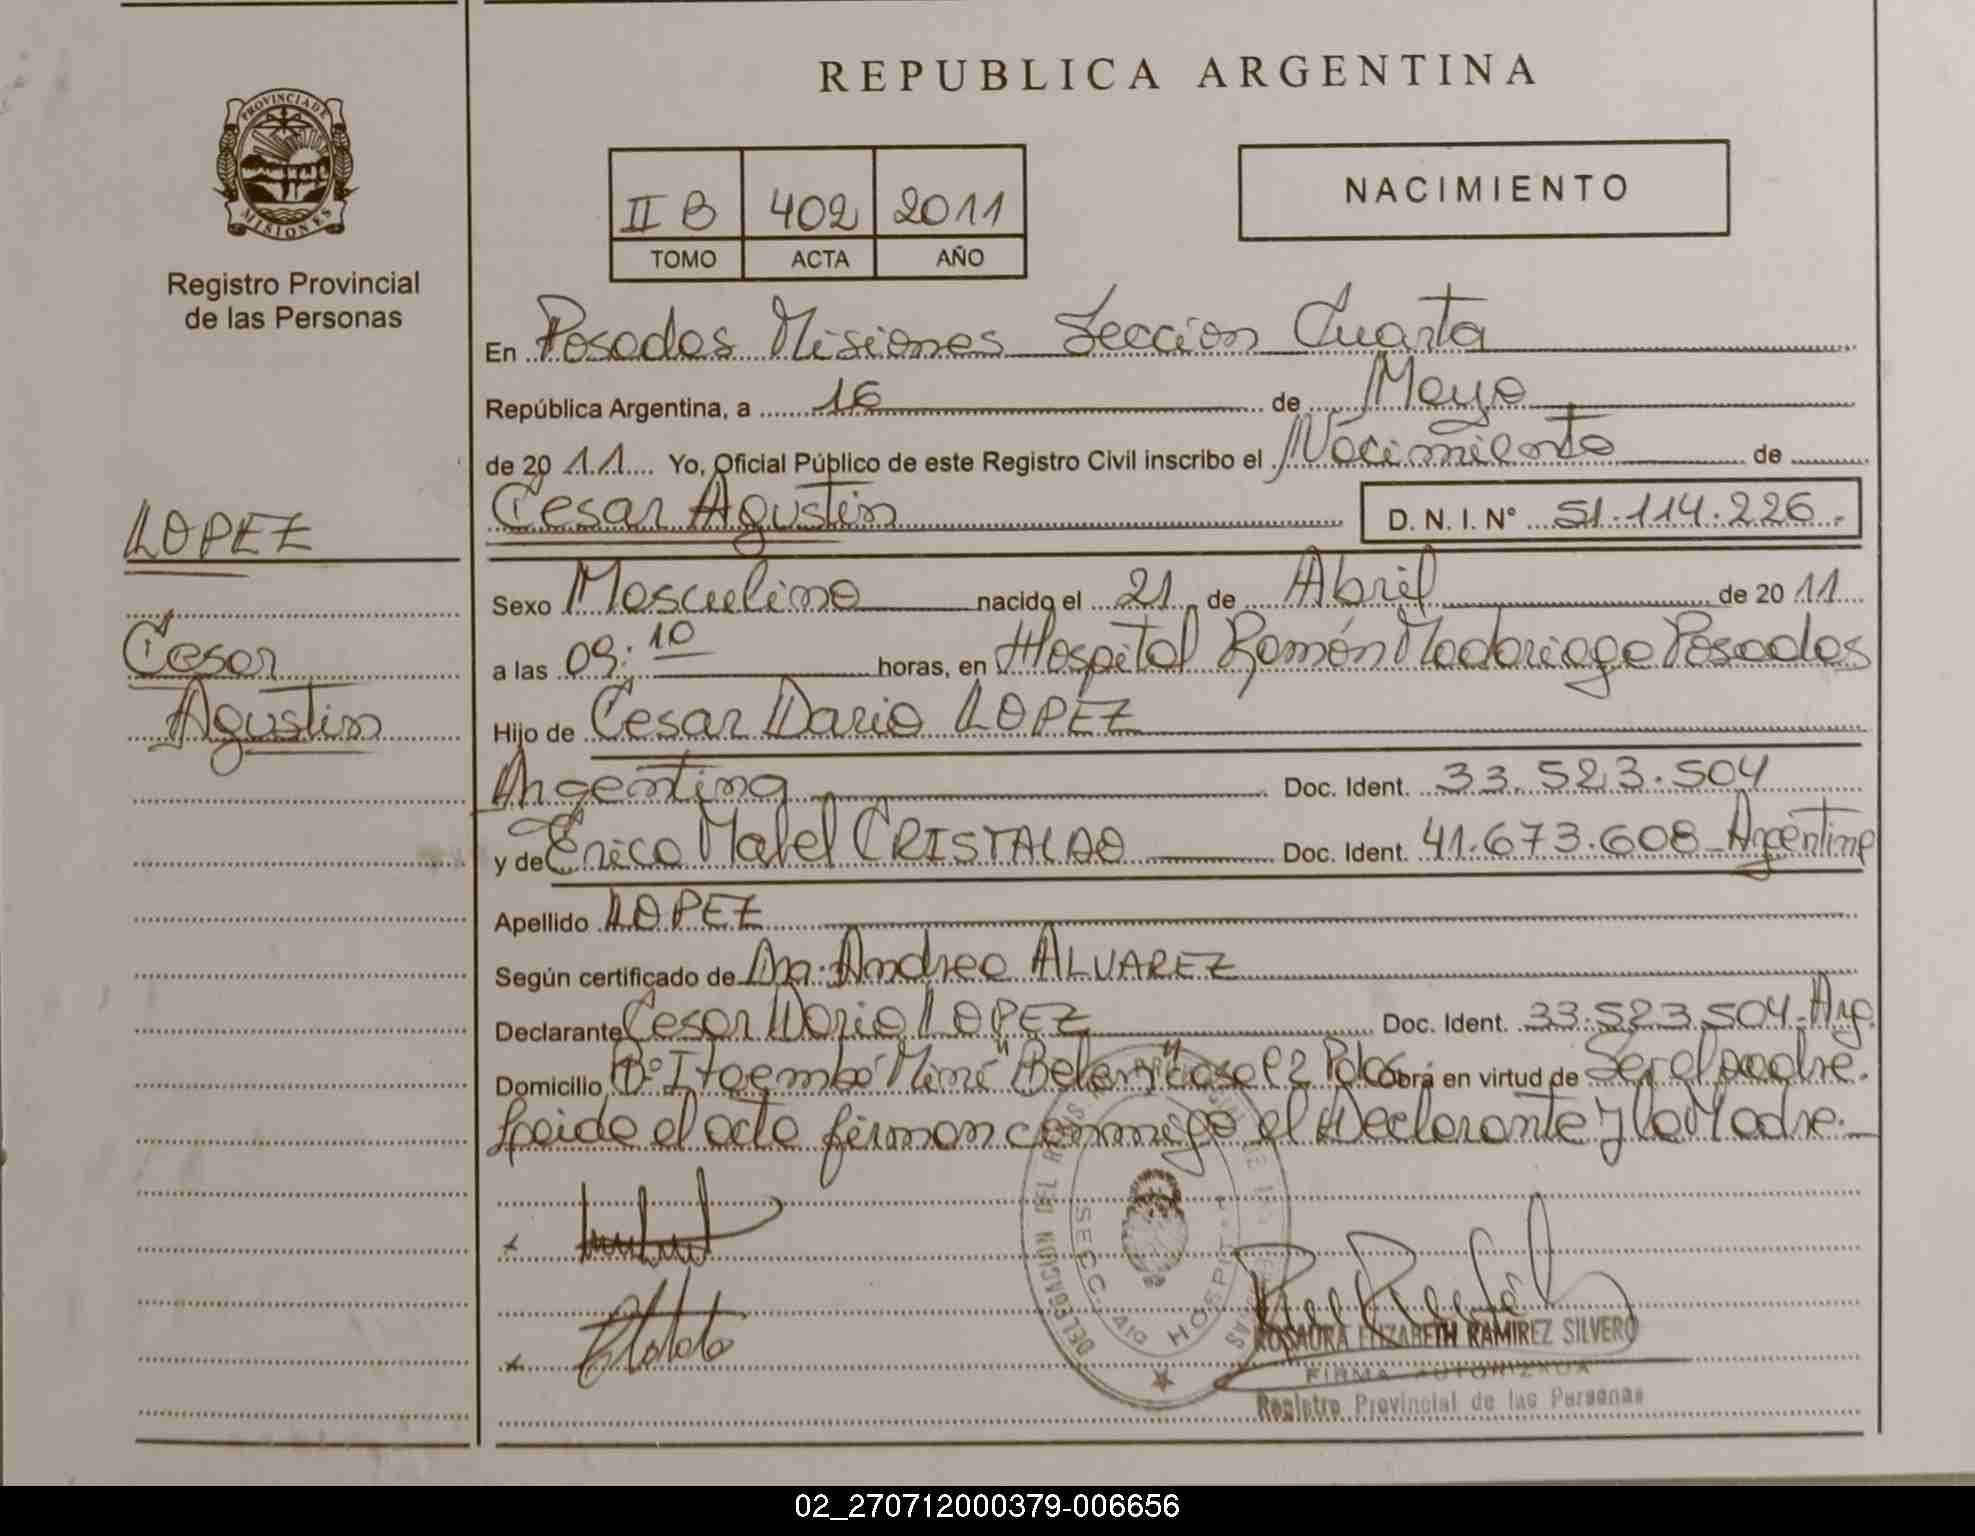 REPUBLICA ARGENTINA
PROVINCIA DE
MISIONES
Registro Provincial
de las Personas
II B 402 2011
TOMO ACTA AÑO
NACIMIENTO
En Posadas Misiones Sección Cuarta
República Argentina, a 16 de Mayo
de 2011 Yo, Oficial Público de este Registro Civil inscribo el Nacimiento de
Cesar Agustin D. N. I. Nº 51.114.226.
LOPEZ
Cesar
Agustin
Sexo Masculino nacido el 21 de Abril de 2011
a las 09:10 horas, en Hospital Ramón Madariaga Posadas
Hijo de Cesar Dario LOPEZ
Argentina Doc. Ident. 33.523.504
y de Erica Mabel CRISTALDO Doc. Ident. 41.673.608 Argentina
Apellido LOPEZ
Según certificado de Dra. Andrea ALVAREZ
Declarante Cesar Dario LOPEZ Doc. Ident. 33.523.504 - Arg.
Domicilio Bº Itaembé Miní "Belen" casa 62 Pdas Obra en virtud de Ser el padre.
Leida el acta firman conmigo el Declarante y la Madre.
DELEGACION DEL
SECC. 4ta HOSPITAL
ROSAURA ELIZABETH RAMIREZ SILVERO
FIRMA AUTORIZADA
Registro Provincial de las Personas
02_270712000379-006656